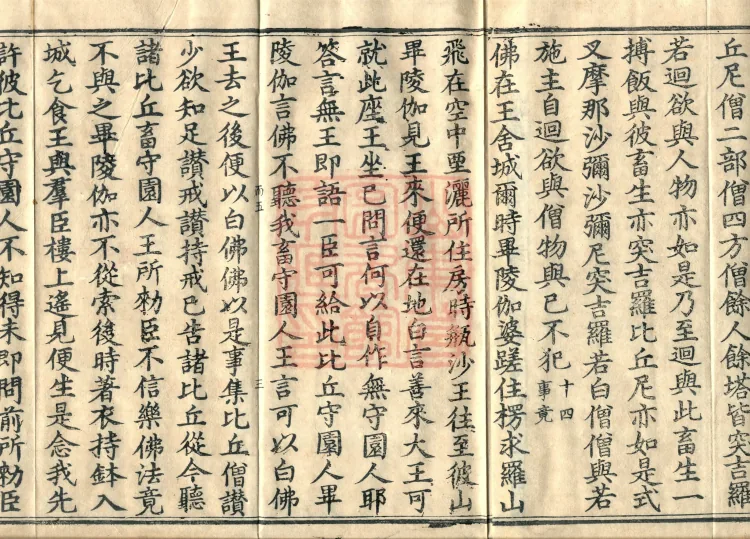 丘尼僧二部僧四方僧餘人餘塔皆突吉羅
若迴欲與人物亦如是乃至迴與此畜生一
摶飯與彼畜生亦突吉羅比丘尼亦如是式
叉摩那沙彌沙彌尼突吉羅若白僧僧與若
施主自迴欲與僧物與已不犯十四事竟
佛在王舍城爾時畢陵伽婆蹉住楞求羅山
飛在空中堊灑所住房時瓶沙王往至彼山
畢陵伽見王來便還在地白言善來大王可
就此座王坐已問言何以自作無守園人耶
答言無王即語一臣可給此比丘守園人畢
陵伽言佛不聽我畜守園人王言可以白佛
而五 三
王去之後便以白佛佛以是事集比丘僧讚
少欲知足讚戒讚持戒已告諸比丘從今聽
諸比丘畜守園人王所勑臣不信樂佛法竟
不與之畢陵伽亦不從索後時著衣持鉢入
城乞食王與羣臣樓上遙見便生是念我先
許彼比丘守園人不知得未即問前所勑臣